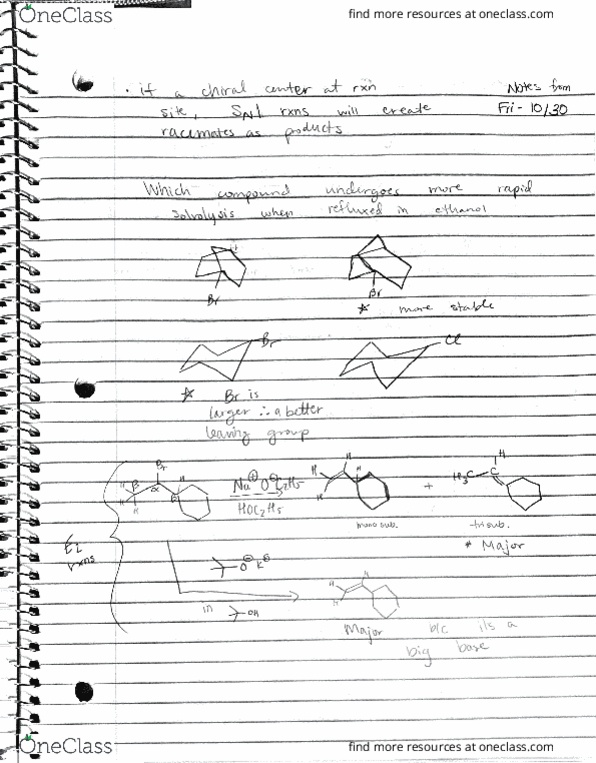 OneClass
find more resources at oneclass.com
· if a chiral center at rxn
site, SN1 rxns will create
racemates as products
Notes from
Fri - 10/30
Which compound undergoes more rapid
solvolysis when refluxed in ethanol
Br
Br
* more stable
Br
Cl
* Br is
larger ∴ a better
leaving group
E2
rxns
Br
β
α
β
H
H
H
Na⊕ ⊖OC2H5
HOC2H5
H
H
H
+
H3C
C
H
mono sub.
tri sub.
* Major
O⊖ K⊕
in
OH
H
H
H
Major b/c its a
big base
OneClass
find more resources at oneclass.com